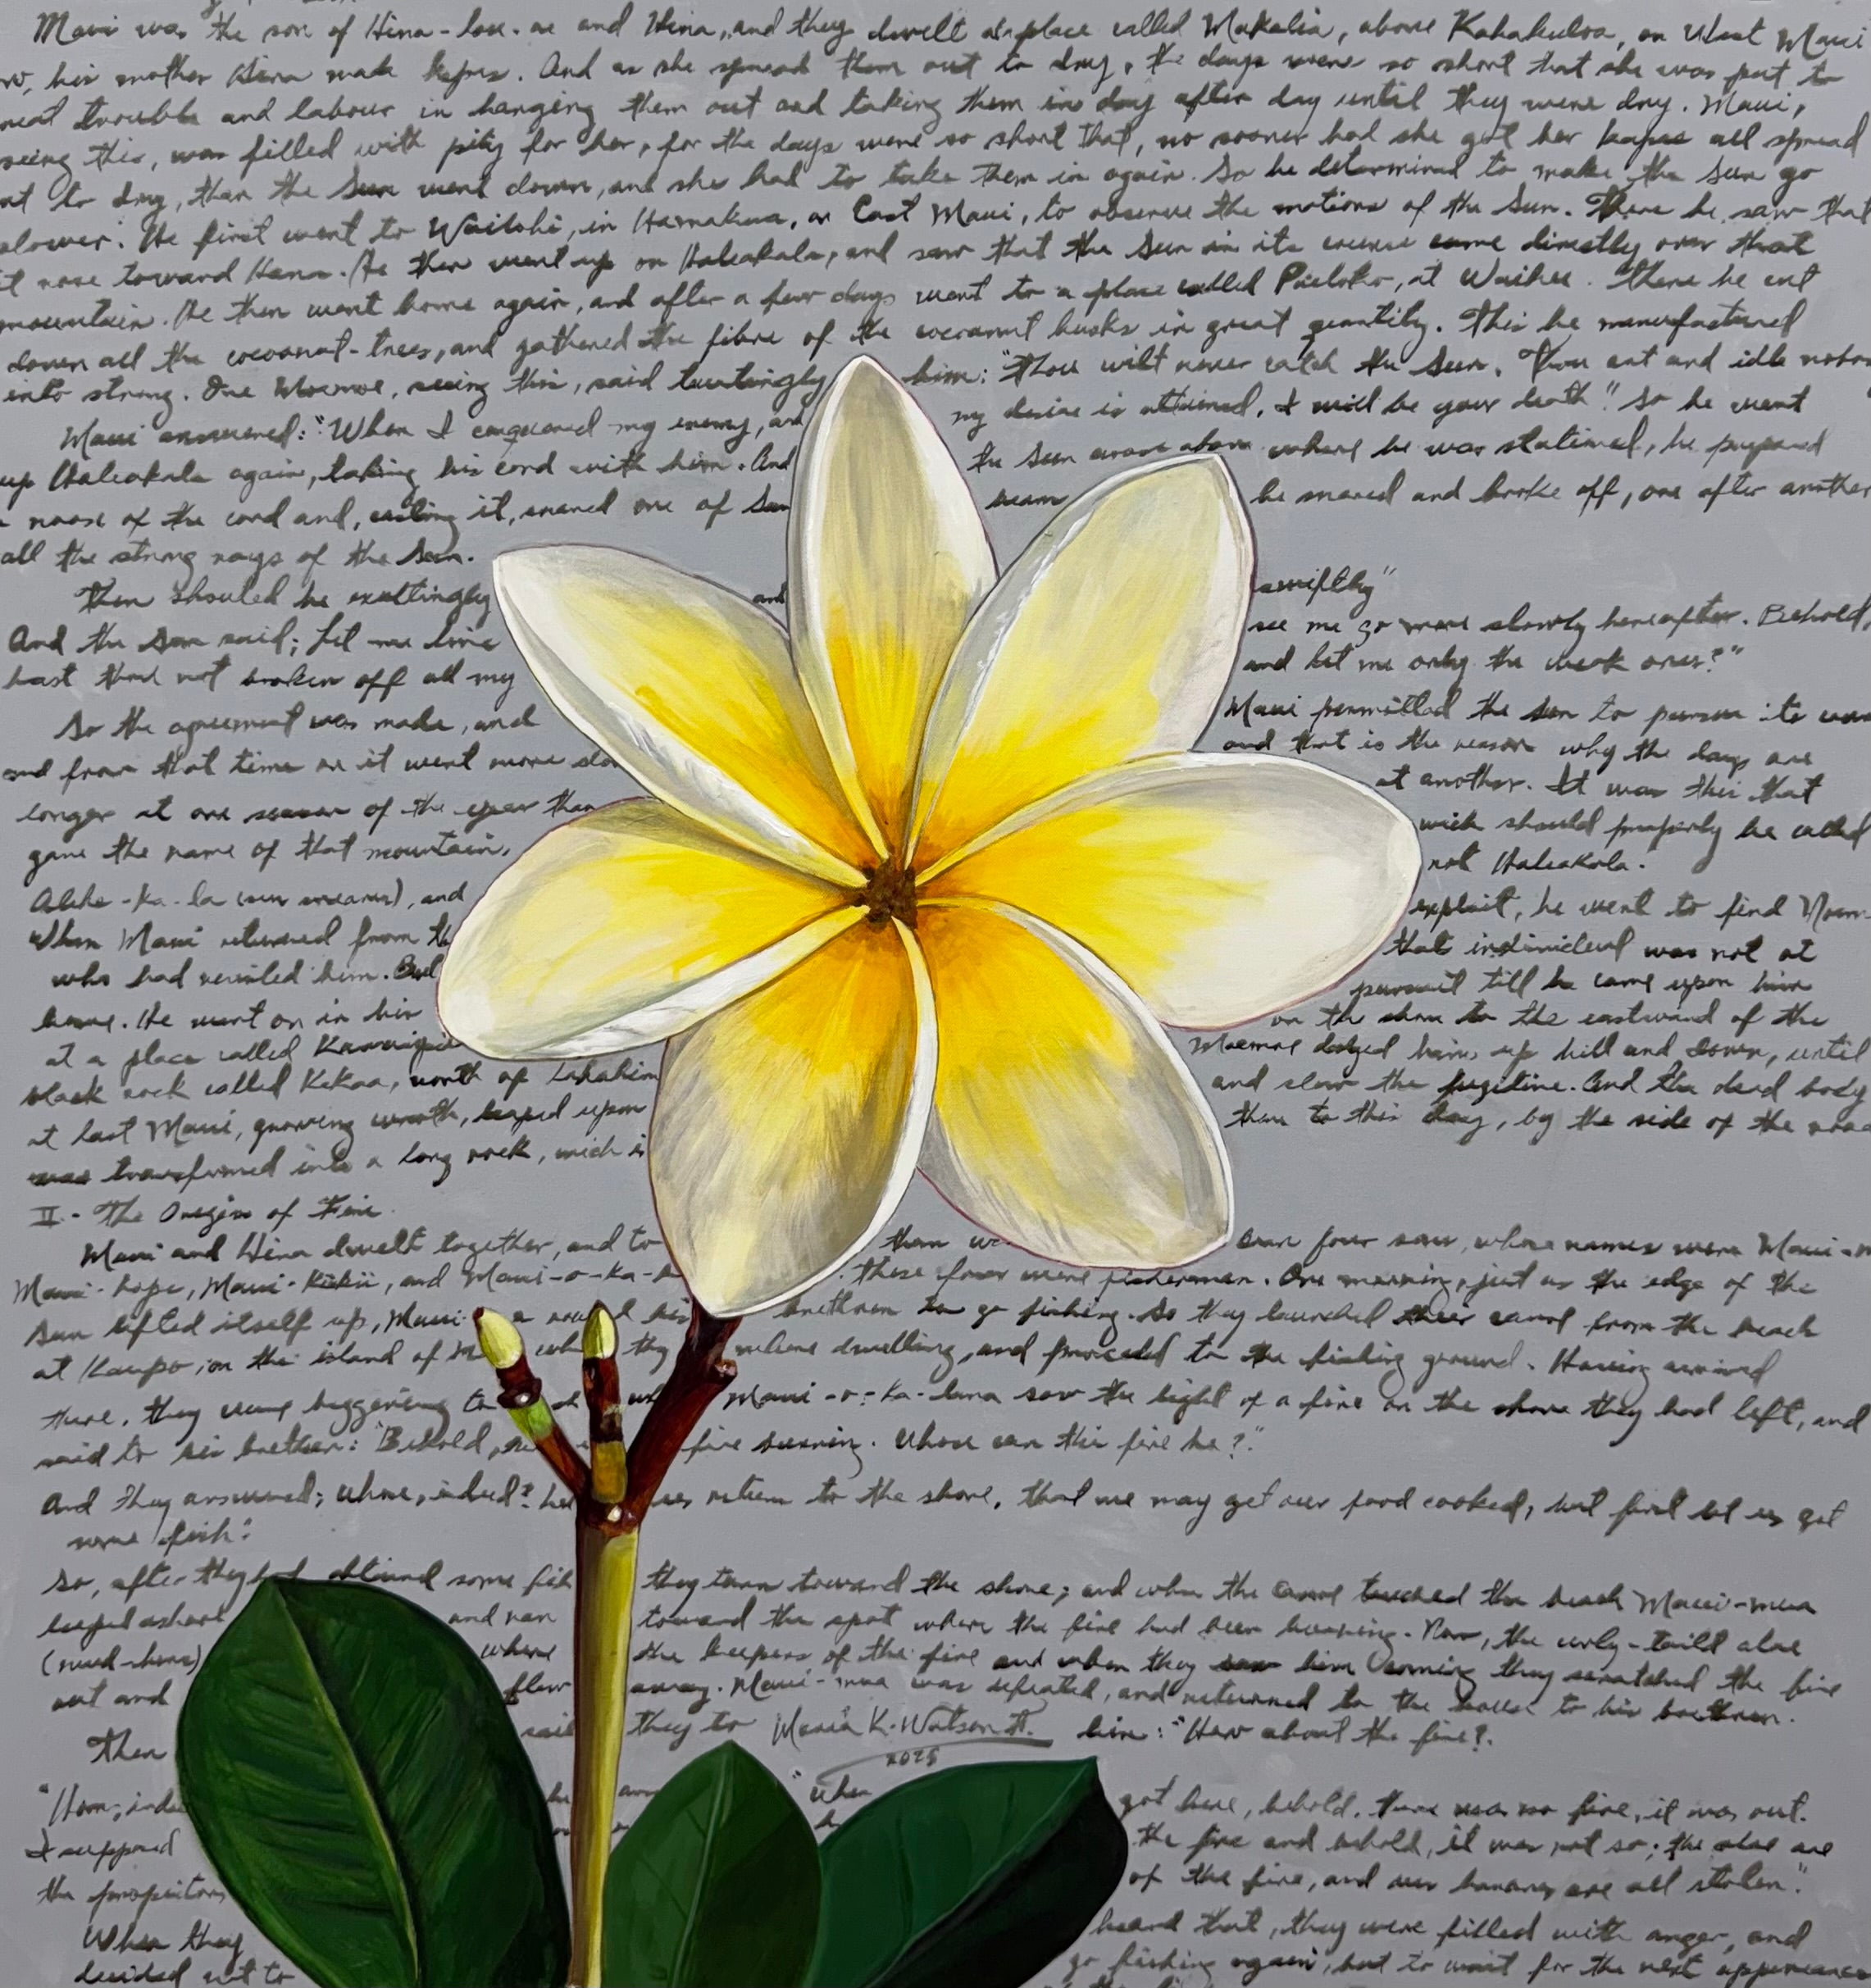 Maui was the son of Hina-lau-ae and Hina, and they dwelt at place called Makalia, above Kahakuloa, on West Maui
w, his mother Hina made kapas. And as she spread them out to dry, the days were so short that she was put to
reat trouble and labour in hanging them out and taking them in day after day until they were dry. Maui,
seeing this, was filled with pity for her, for the days were so short that, no sooner had she got her kapas all spread
out to dry, than the Sun went down, and she had to take them in again. So he determined to make the Sun go
slower. He first went to Wailohi, in Hamakua, on East Maui, to observe the motions of the Sun. There he saw that
it rose toward Hana. He then went up on Haleakala, and saw that the Sun in its course came directly over that
mountain. He then went home again, and after a few days went to a place called Paeloko, at Waihee. There he cut
down all the cocoanut-trees, and gathered the fibre of the cocoanut husks in great quantity. This he manufactured
into strong. One Moemoe, seeing this, said tauntingly him: "Thou wilt never catch the Sun. Thou art and idle
Maui answered: "When I conquered my enemy, and my desire is attained, I will be your death". So he went
up Haleakala again, taking his cord with him. And the Sun arose above where he was stationed, he prepared
a noose of the cord and, casting it, snared one of Sun beam he snared and broke off, one after another
all the strong rays of the Sun.
Then shouted he exultingly and swiftly"
And the Sun said; Let me live see me go more slowly hereafter. Behold,
hast thou not broken off all my and let me only the weak ones?"
So the agreement was made, and Maui permitted the Sun to pursue its
and from that time on it went more slo and that is the reason why the days are
longer at one season of the year than at another. It was this that
gave the name of that mountain, wich should properly be called
Alehe-ka-la (sun snare), and not Haleakala.
When Maui returned from th exploit, he went to find Moem
who had reviled him. But that individual was not at
home. He went on in his pursuit till he came upon him
at a place called on the shore to the eastward of the
black rock called Kekaa, north of Lahaina Moemoe dodged him up hill and down, until
at last Maui, growing wroth, leaped upon and slew the fugitive. And the dead body
was transformed into a long rock, wich is there to this day, by the side of the road
II.- The Origin of Fire
Maui and Hina dwelt together, and to them were four sons, whose names were Maui-m
Maui-hope, Maui-Kiikii, and Maui-o-ka- These four were fishermen. One morning, just as the edge of the
Sun lifted itself up, Maui- roused his brethren to go fishing. So they launched their canoe from the beach
at Kaupo, on the island of M whe they where dwelling, and proceeded to the fishing ground. Having arrived
there, they were beggining to Maui-o-ka-lana saw the light of a fire on the shore they had left, and
said to his brethren: "Behold, fire burning. Whose can this fire be?"
And they answered; whose, indeed? let us return to the shore, that we may get our food cooked, but first let us get
some fish".
So, after they had obtained some fish they turn toward the shore; and when the canoe touched the beach Maui-mua
leaped ashore and ran toward the spot where the fire had been burning. Now, the curly-taild alae
(mud-hens) where the keepers of the fire and when they saw him coming they scratched the fire
out and flew away. Maui-mua was defeated, and returned to the house to his brethren.
Then said they to Maria K. Watson II. him: "How about the fire?.
2025
"How, inde he "when got here, behold, there was no fire, it was out.
I supposed the fire and behold, it was not so; the alae are
the propietors of the fire, and our bananas are all stolen".
When they heard that, they were filled with anger, and
decided not to go fishing again, but to wait for the next appearance